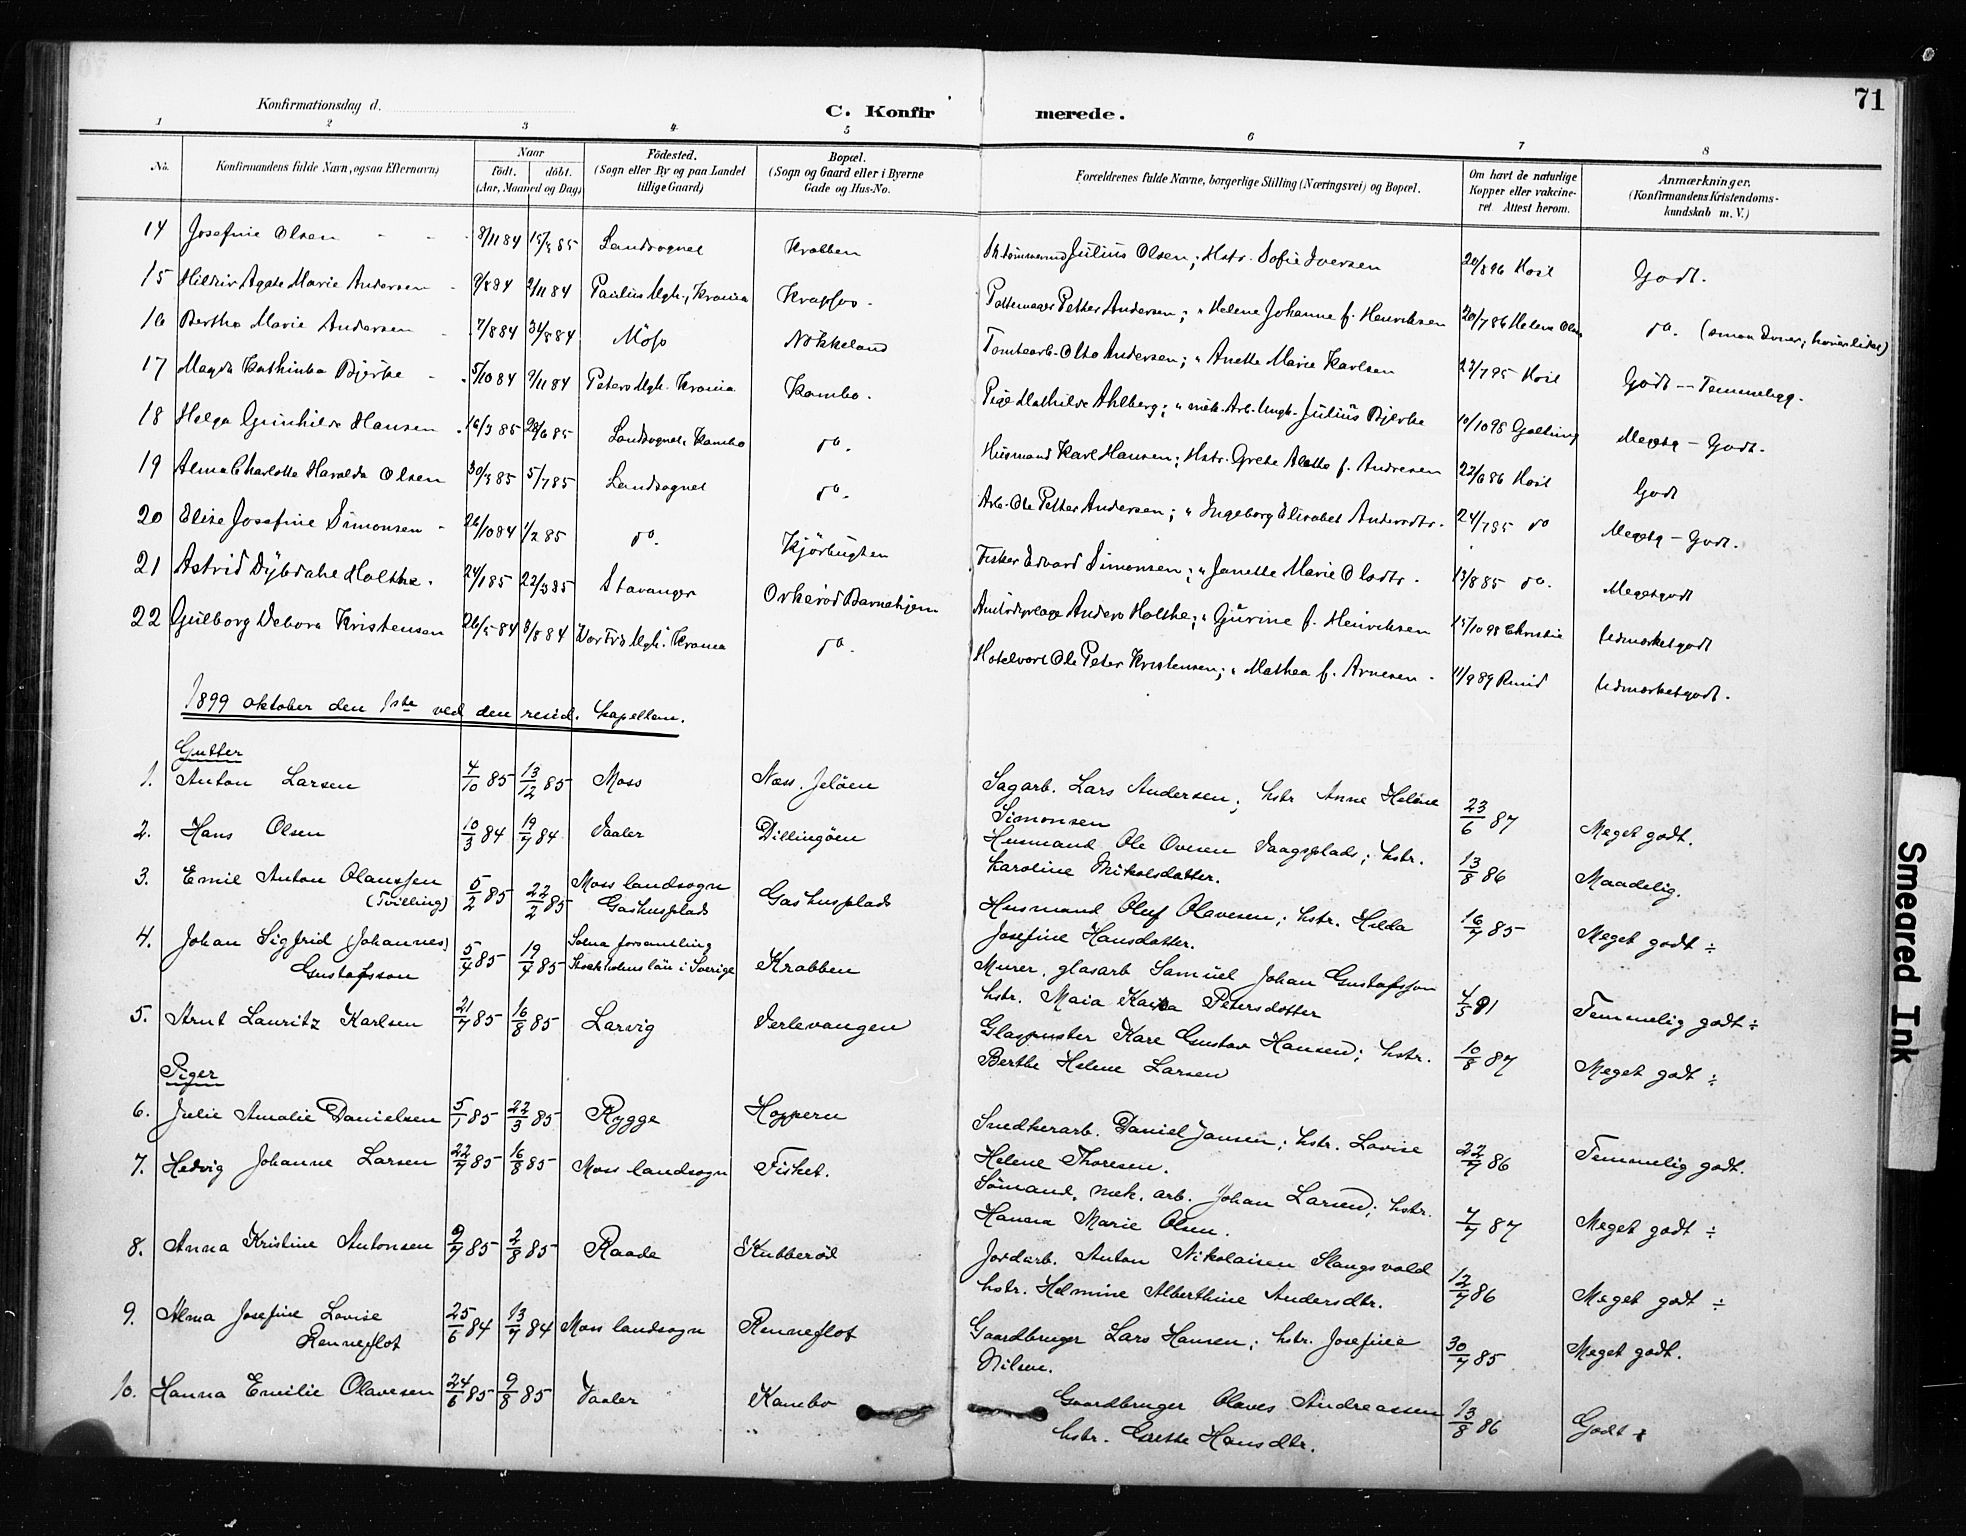 71
Konfirmationsdag d.
C. Konfir merede.
1 2 3 4 5 6 7 8
No. Konfirmandens fulde Navn, ogsaa Efternavn) Naar födt. döbt. (Aar, Maaned og Dag) Födested. (Sogn eller By og paa Landet tillige Gaard) Bopæl. (Sogn og Gaard eller i Byerne Gade og Hus-No. Forældrenes fulde Navne, borgerlige Stilling (Næringsvei) og Bopæl. Om havt de naturlige Kopper eller vakcineret Attest herom. Anmærkninger. (Konfirmandens Kristendomskundskab m. V.)
14 Josefine Olsen 8/11 84 15/3 85 Landsognet Krabben Julius Olsen; Hstr. Sofie Iversen 20/8 96 Godt.
15 Agate Marie Andersen 9/8 84 2/11 84 Paulus Mgh., Krania Pottemager Petter Andersen; " Helene Johanne f. Henriksen 20/7 86 do.
16 Bertha Marie Andersen 7/8 84 31/8 84 Moss Nökkeland Tomtearb. Otto Andersen; " Anette Marie Karlsen 23/7 95 Godt - Temmeligg.
17 Magda Kathinka Bjerke 5/10 84 9/11 84 Peters Mgh. Krania Kambo. Pige Mathilde Ahlberg; " mek. Arb. Ungk. Julius Bjerke 10/10 98 Meget - Godt.
18 Helga Gunhilde Hansen 16/3 85 28/6 85 Landsognet, Kambo do. Husmand Karl Hansen; Hstr. Grete Alette f. Andresen 22/6 86 Godt
19 Alma Charlotte Haralda Olsen 30/3 85 5/7 85 Landsognet do. Arb. Ole Petter Andersen; " Ingeborg Elisabet Andersdtr. 24/7 85 do Meget - Godt.
20 Elise Josefine Simonsen 26/10 84 1/2 85 do. Kjörbugten Fisker Edvard Simonsen; " Janette Marie Olsdtr. 13/8 85 do. Megetgodt
21 Astrid Dybdahl Holthe. 24/1 85 22/3 85 Stavanger Orkeröd Barnehjem Anders Holthe; " Gurine f. Heinriksen 15/10 98 Christie Udmærketgodt
22 Gulborg Debora Kristensen 26/5 84 3/8 84 Vor Frs Mgh. Krania do. Hotelvært Ole Peter Kristensen; " Mathea f. Arnesen 11/9 89 Ruud Udmærketgodt.
1899 oktober den 1ste ved den resid. kapellan.
Gutter
1. Anton Larsen 4/10 85 13/12 85 Moss Næss. Jelöen Sagarb. Lars Andersen; hstr Anne Helene Simonsen 23/6 87 Meget godt.
2. Hans Olsen 10/3 84 19/7 84 Vaaler Dillingöen Husmand Ole Ovesen Vaagsplads; hstr. Karoline Mikolsdatter. 13/8 86 Maadelig.
3. Emil Anton Olaussen (Tvilling) 5/2 85 22/2 85 Moss landsogn Gashusplads Gashusplads Husmand Oluf Olavesen; hstr. Hilda Josefine Hansdatter. 16/7 85 Meget godt ÷
4. Johan Sigfrid (Johannes) Gustafsson 5/4 85 19/4 85 Solna forsamling Stockholms län i Sverige Krabben Murer, glasarb Samuel Johan Gustafsson hstr. Maia Kaisa Petersdotter 4/5 91 Temmelig godt ÷
5. Arnt Lauritz Karlsen 21/7 85 16/8 85 Larvig Verlevangen Glaspuster Karl Gustav Hansen; hstr. Berthe Helene Larsen 10/8 87 Meget godt ÷
Piger
6. Julie Amalie Danielsen 5/1 85 22/3 85 Rygge Hoppern Snedkerarb. Daniel Jansen; hstr. Lovise Helene Thoresen. 22/7 86 Temmelig godt.
7. Hedvig Johanne Larsen 22/7 85 16/8 85 Moss landsogn Fisket. Sömand, mek. arb. Johan Larsen; hstr. Hanna Marie Olsen. 7/7 87 Meget godt ÷
8. Anna Kristine Antonsen 9/7 85 2/8 85 Raade Kubberöd Jordarb. Anton Nikolaisen Slangsvold hstr. Helmine Alberthine Andersdtr. 12/7 86 Meget godt ÷
9. Alma Josefine Lovise Renneflot 25/6 84 13/7 84 Moss landsogn Renneflot Gaardbruger Lars Hansen; hstr. Josefine Nilsen. 30/7 85 Meget godt.
10. Hanna Emilie Olavesen 24/6 85 9/8 85 Vaaler Kambo Gaardbruger Olaves Andreassen hstr. Grethe Hansdtr. 13/8 86 Godt
Smeared Ink